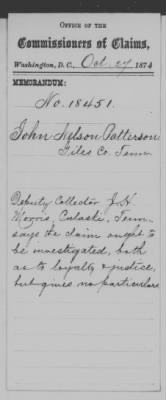 OFFICE OF THE
Commissioners of Claims,
Washington, D.C., Oct. 27, 1874
MEMORANDUM:
No. 18451.
John Nelson Patterson
Giles Co. Tenn.
Deputy Collector J. H.
Morris, Pulaski, Tenn.
says the claim ought to
be investigated, both
as to loyalty & justice,
but gives no particulars